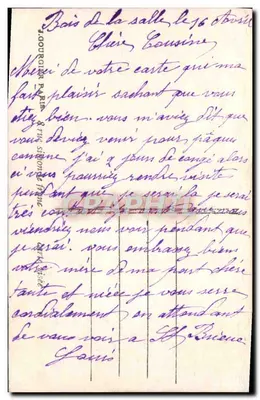 Bois de la salle le 16 Avril
Chère Cousine
Merci de votre carte qui ma
fait plaisir sachant que vous
étiez bien. vous m'aviez dit que
vous deviez venir pour pâques
comme j'ai 2 jours de congé alors
si vous pourriez rendre visite
pendant que je serai là je serai
très
viendriez nous voir pendant que
je serai. vous embrasez bien
votre mère de ma part chère
tante et nièce je vous serre
cordialement en attendant
de vous voir a St Brieuc
Louis